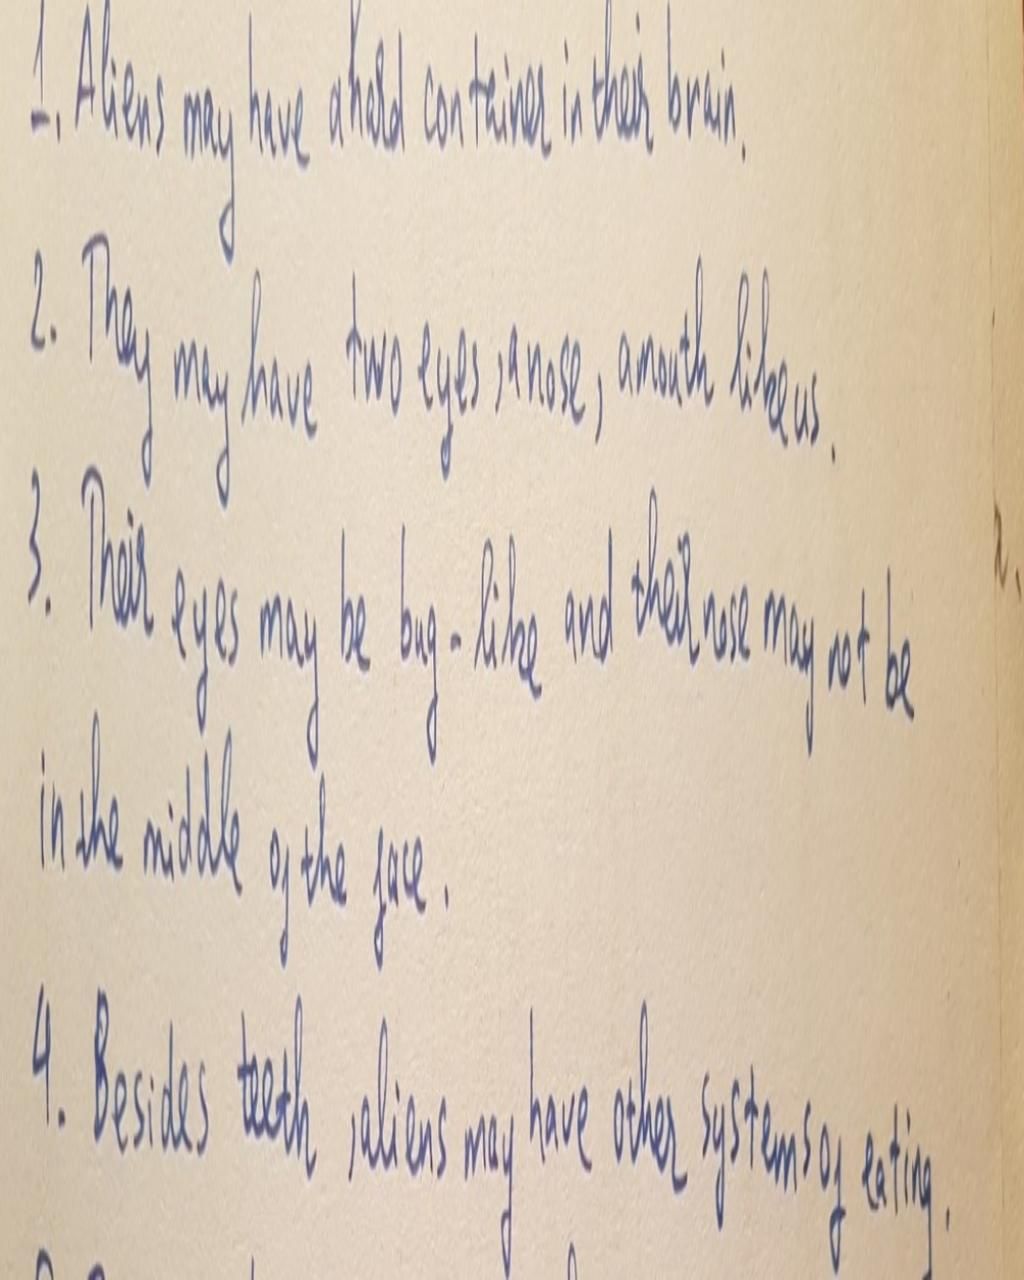 1. Aliens may have a hard container in their brain.
2. They may have two eyes, a nose, a mouth like us.
3. Their eyes may be bug-like and their nose may not be
in the middle of the face.
4. Besides teeth, aliens may have other systems of eating.
2.